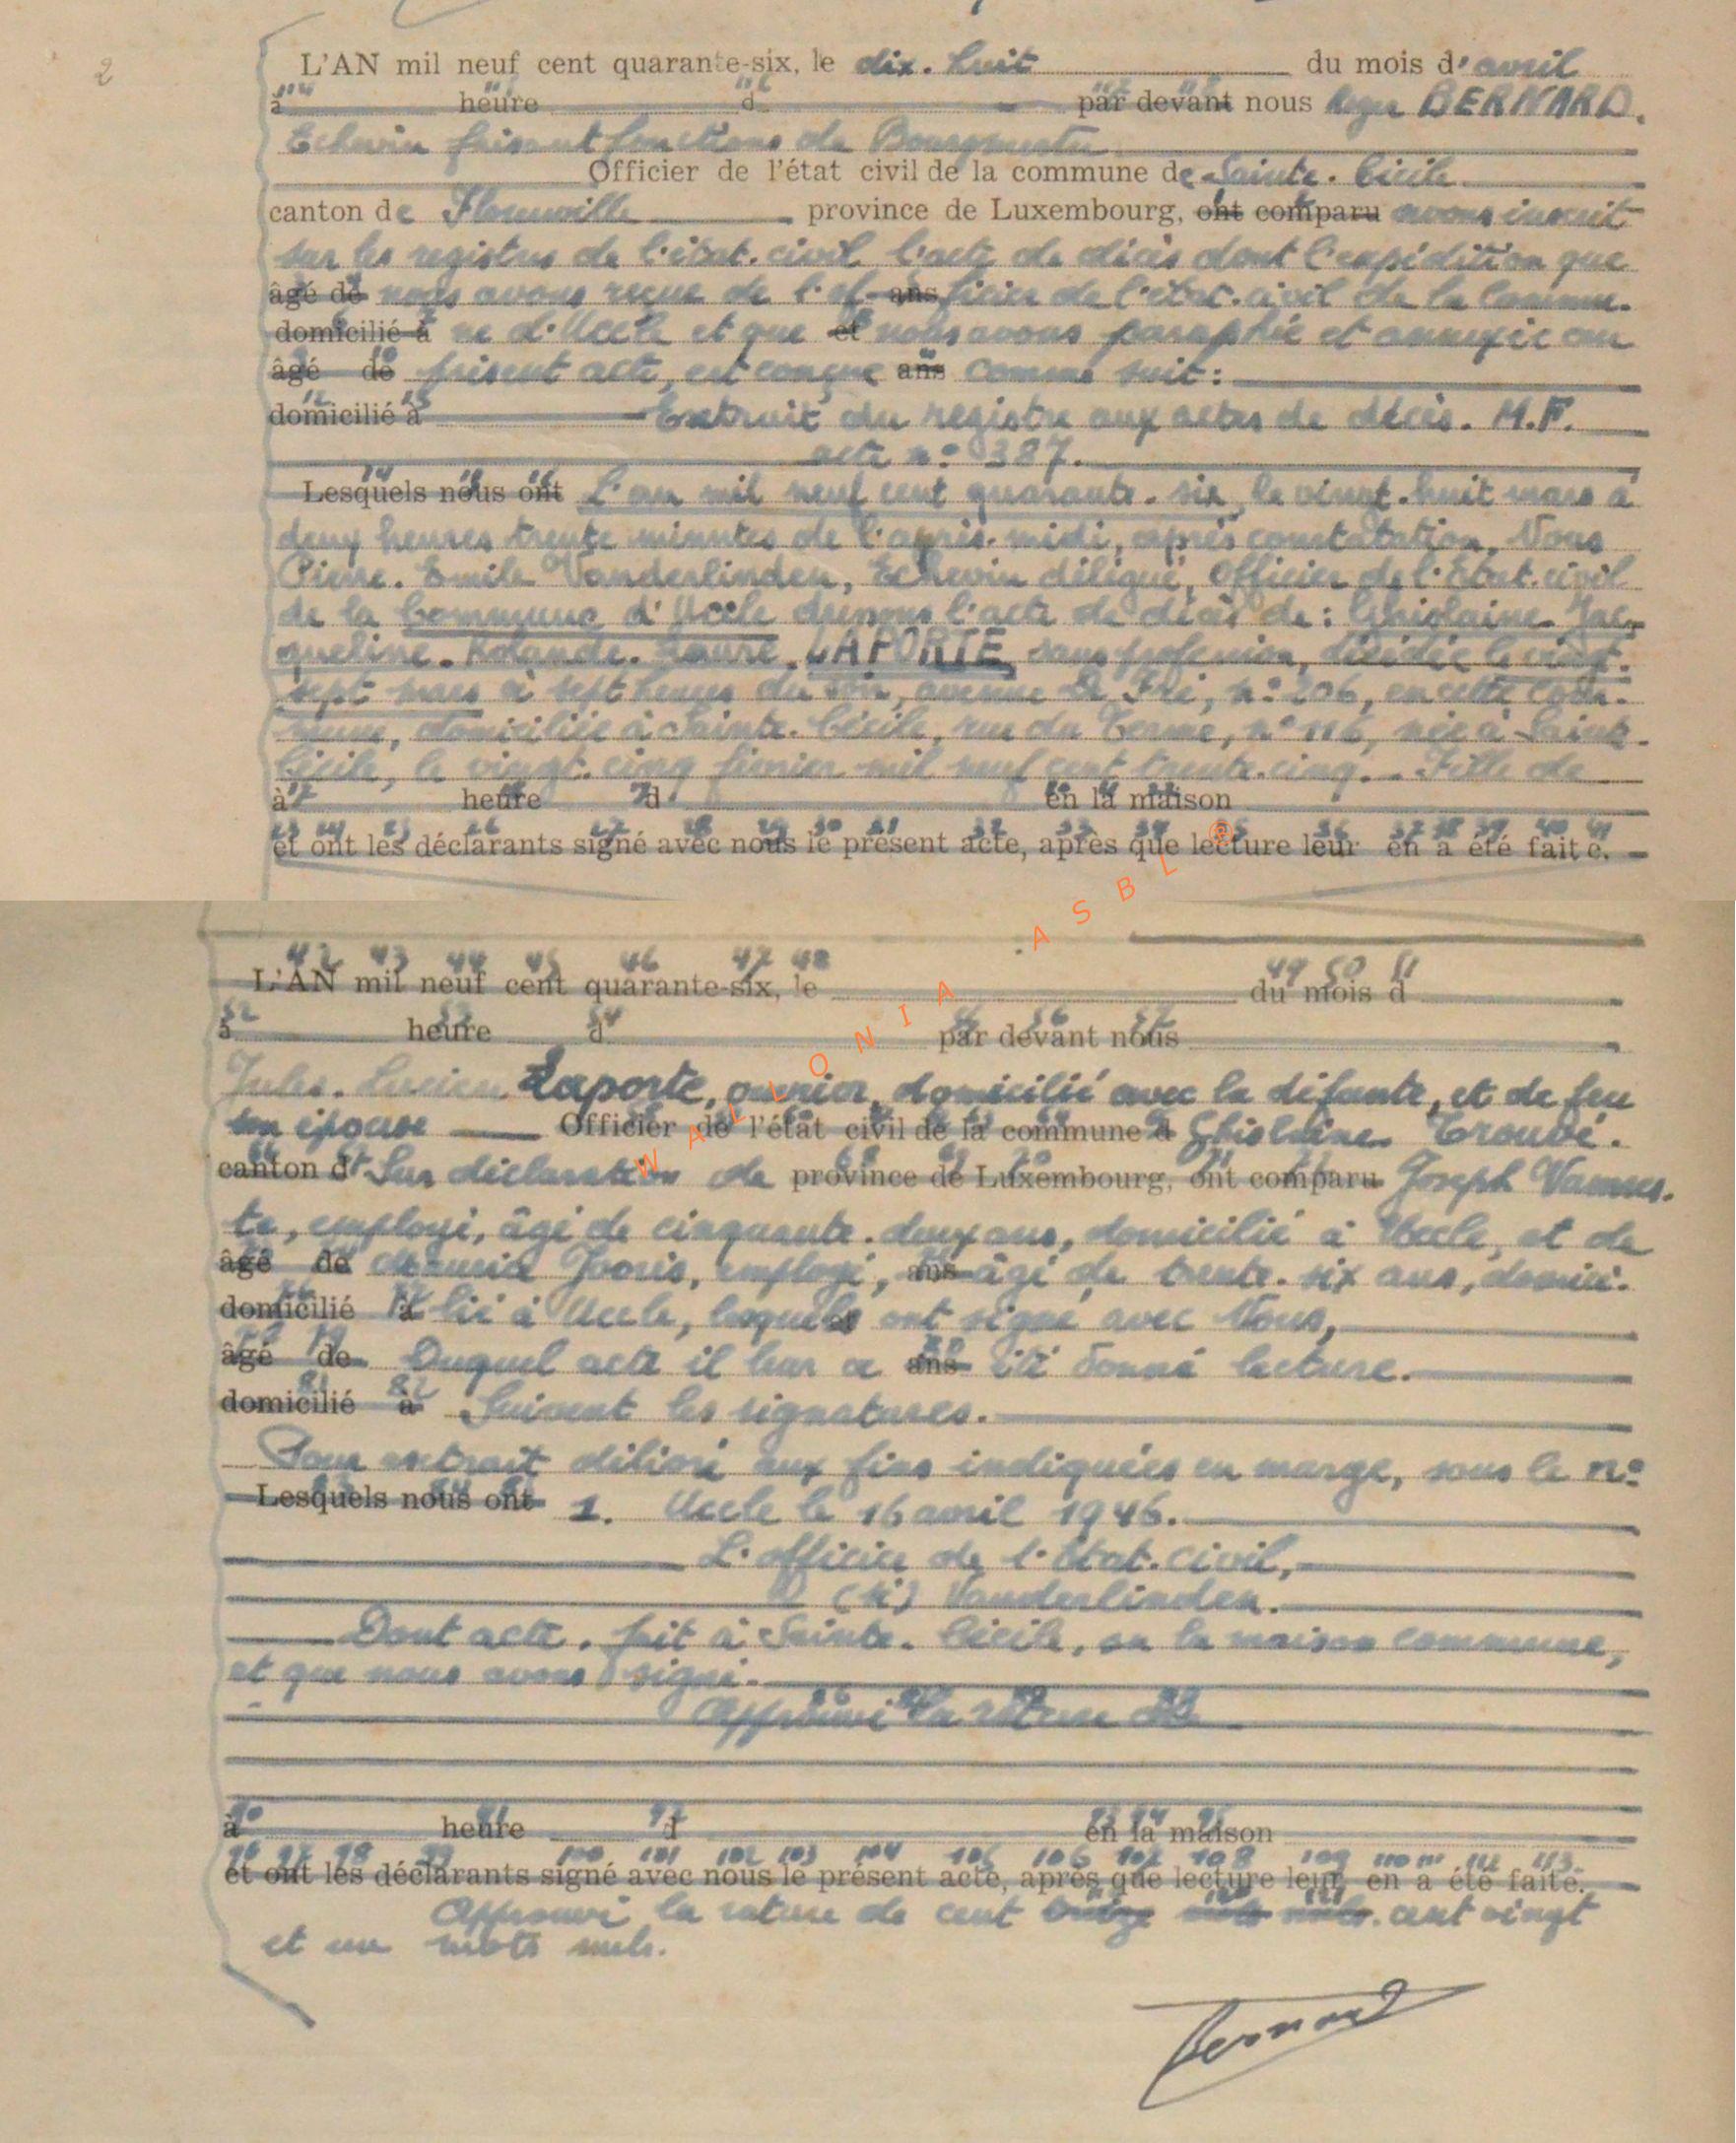 2
L'AN mil neuf cent quarante-six, le dix-huit du mois d'avril
à heure d par devant nous Roger BERNARD.
Echevin faisant fonctions de Bourgmestre
Officier de l'état civil de la commune de Sainte-Cécile
canton de Florenville province de Luxembourg, ont comparu avons inscrit
sur les registres de l'état-civil l'acte de décès dont l'expédition que
âgé de nous avons reçue de l'of- ans ficier de l'état-civil de la Commu-
domicilié à ne d'Uccle et que et nous avons paraphée et annexée au
âgé de présent acte, est conçue ans comme suit:
domicilié à Extrait du registre aux actes de décès. M.F.
acte n° 387.
Lesquels nous ont L'an mil neuf cent quarante-six, le vingt-huit mars à
deux heures trente minutes de l'après-midi, après constatation, Nous
Pierre-Emile Vanderlinden, Echevin délégué, Officier de l'Etat-civil
de la Commune d'Uccle dressons l'acte de décès de: Ghislaine-Jac-
queline-Rolande-Laure LAPORTE, sans profession, décédée le vingt-
sept mars à sept heures du soir, avenue De Fré, n° 206, en cette Com-
mune, domiciliée à Sainte-Cécile, rue du Terme, n° 116, née à Sainte-
Cécile, le vingt-cinq février mil neuf cent trente-cinq. Fille de
à heure d en la maison
et ont les déclarants signé avec nous le présent acte, après que lecture leur en a été faite.
L'AN mil neuf cent quarante-six, le du mois d
à heure d par devant nous
Jules-Lucien Laporte, ouvrier, domicilié avec la défunte, et de feu
son épouse Officier de l'état civil de la commune d Ghislaine Trouvé.
canton d Sur déclaration de province de Luxembourg, ont comparu Joseph
te, employé, âgé de cinquante-deux ans, domicilié à Uccle, et de
âgé de Jooris, employé, ans âgé de trente-six ans, domici-
domicilié à lié à Uccle, lesquels ont signé avec Nous,
âgé de Duquel acte il leur a ans été donné lecture.
domicilié à Suivent les signatures.
Pour extrait délivré aux fins indiquées en marge, sous le n°
Lesquels nous ont 1. Uccle le 16 avril 1946.
L'officier de l'Etat-civil,
(sé) Vanderlinden.
Dont acte, fait à Sainte-Cécile, en la maison communale,
et que nous avons signé.
Approuvé la rature de
à heure d en la maison
et ont les déclarants signé avec nous le présent acte, après que lecture leur en a été faite.
Approuvé la rature de cent cent vingt
et un mots nuls.
Bernard
WALLONIA ASBL ®